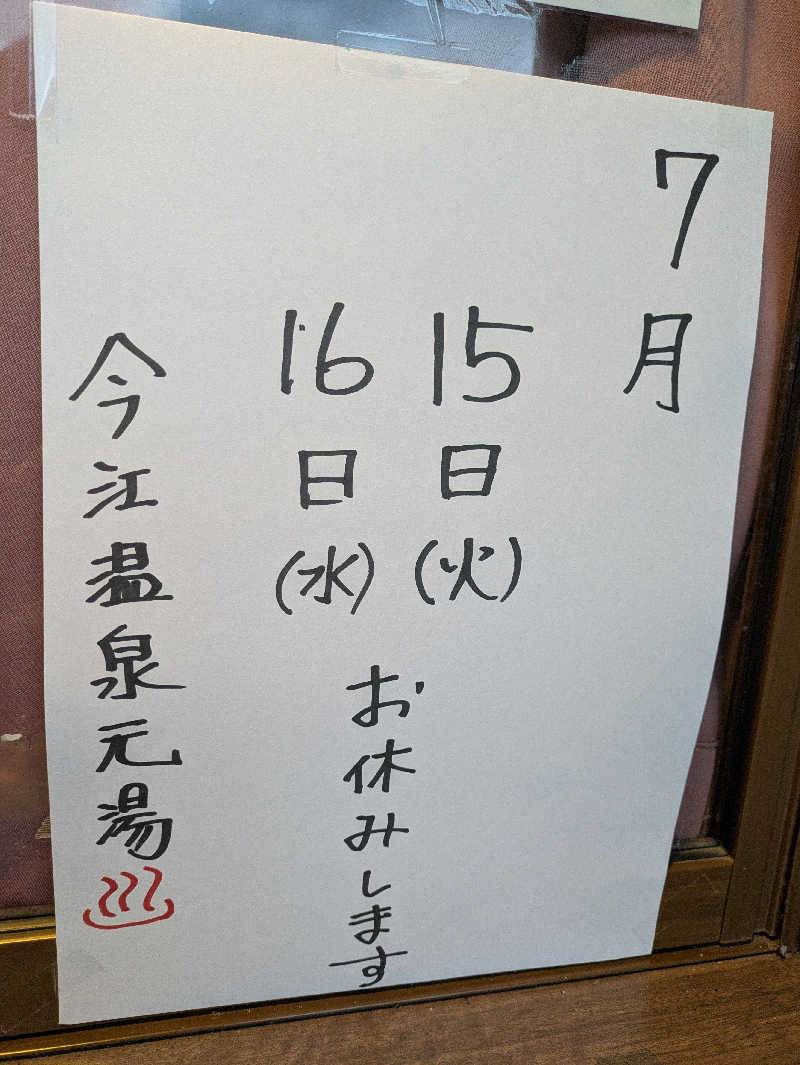 7月
15日(火)
16日(水)
お休みします
今江温泉元湯♨